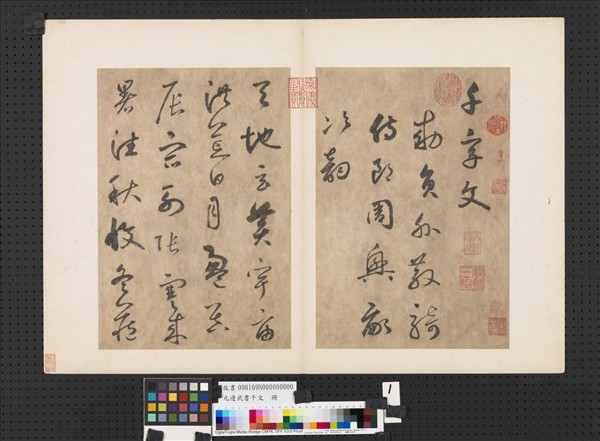 千字文
勅員外散騎
侍郎周興嗣
次韻
天地玄黃宇宙
洪荒日月盈昃
辰宿列張寒來
暑往秋收冬藏
故書 000169N000000000
元邊武書千文 冊
1
Ugra/Fogra Media-Wedge CMYK TIFF V3.0